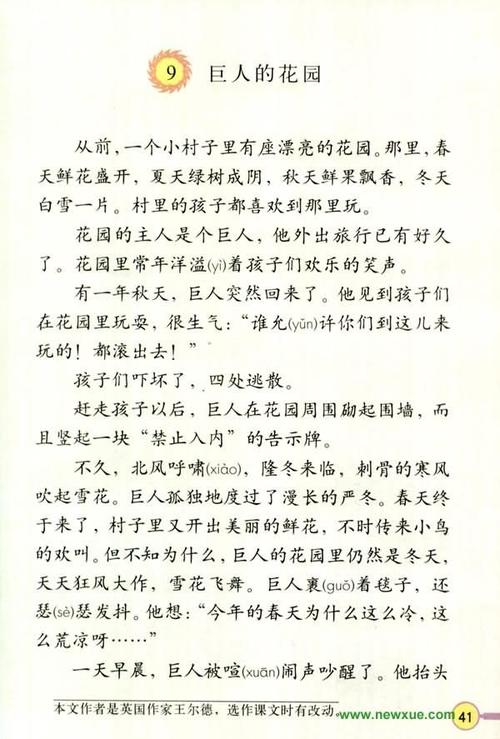 9 巨人的花园
从前，一个小村子里有座漂亮的花园。那里，春
天鲜花盛开，夏天绿树成阴，秋天鲜果飘香，冬天
白雪一片。村里的孩子都喜欢到那里玩。
花园的主人是个巨人，他外出旅行已有好久
了。花园里常年洋溢(yì)着孩子们欢乐的笑声。
有一年秋天，巨人突然回来了。他见到孩子们
在花园里玩耍，很生气：“谁允(yǔn)许你们到这儿来
玩的！都滚出去！”
孩子们吓坏了，四处逃散。
赶走孩子以后，巨人在花园周围砌起围墙，而
且竖起一块“禁止入内”的告示牌。
不久，北风呼啸(xiào)，隆冬来临，刺骨的寒风
吹起雪花。巨人孤独地度过了漫长的严冬。春天终
于来了，村子里又开出美丽的鲜花，不时传来小鸟
的欢叫。但不知为什么，巨人的花园里仍然是冬天，
天天狂风大作，雪花飞舞。巨人裹(guǒ)着毯子，还
瑟(sè)瑟发抖。他想：“今年的春天为什么这么冷，这
么荒凉呀……”
一天早晨，巨人被喧(xuān)闹声吵醒了。他抬头
本文作者是英国作家王尔德，选作课文时有改动。
www.newxue.com 41